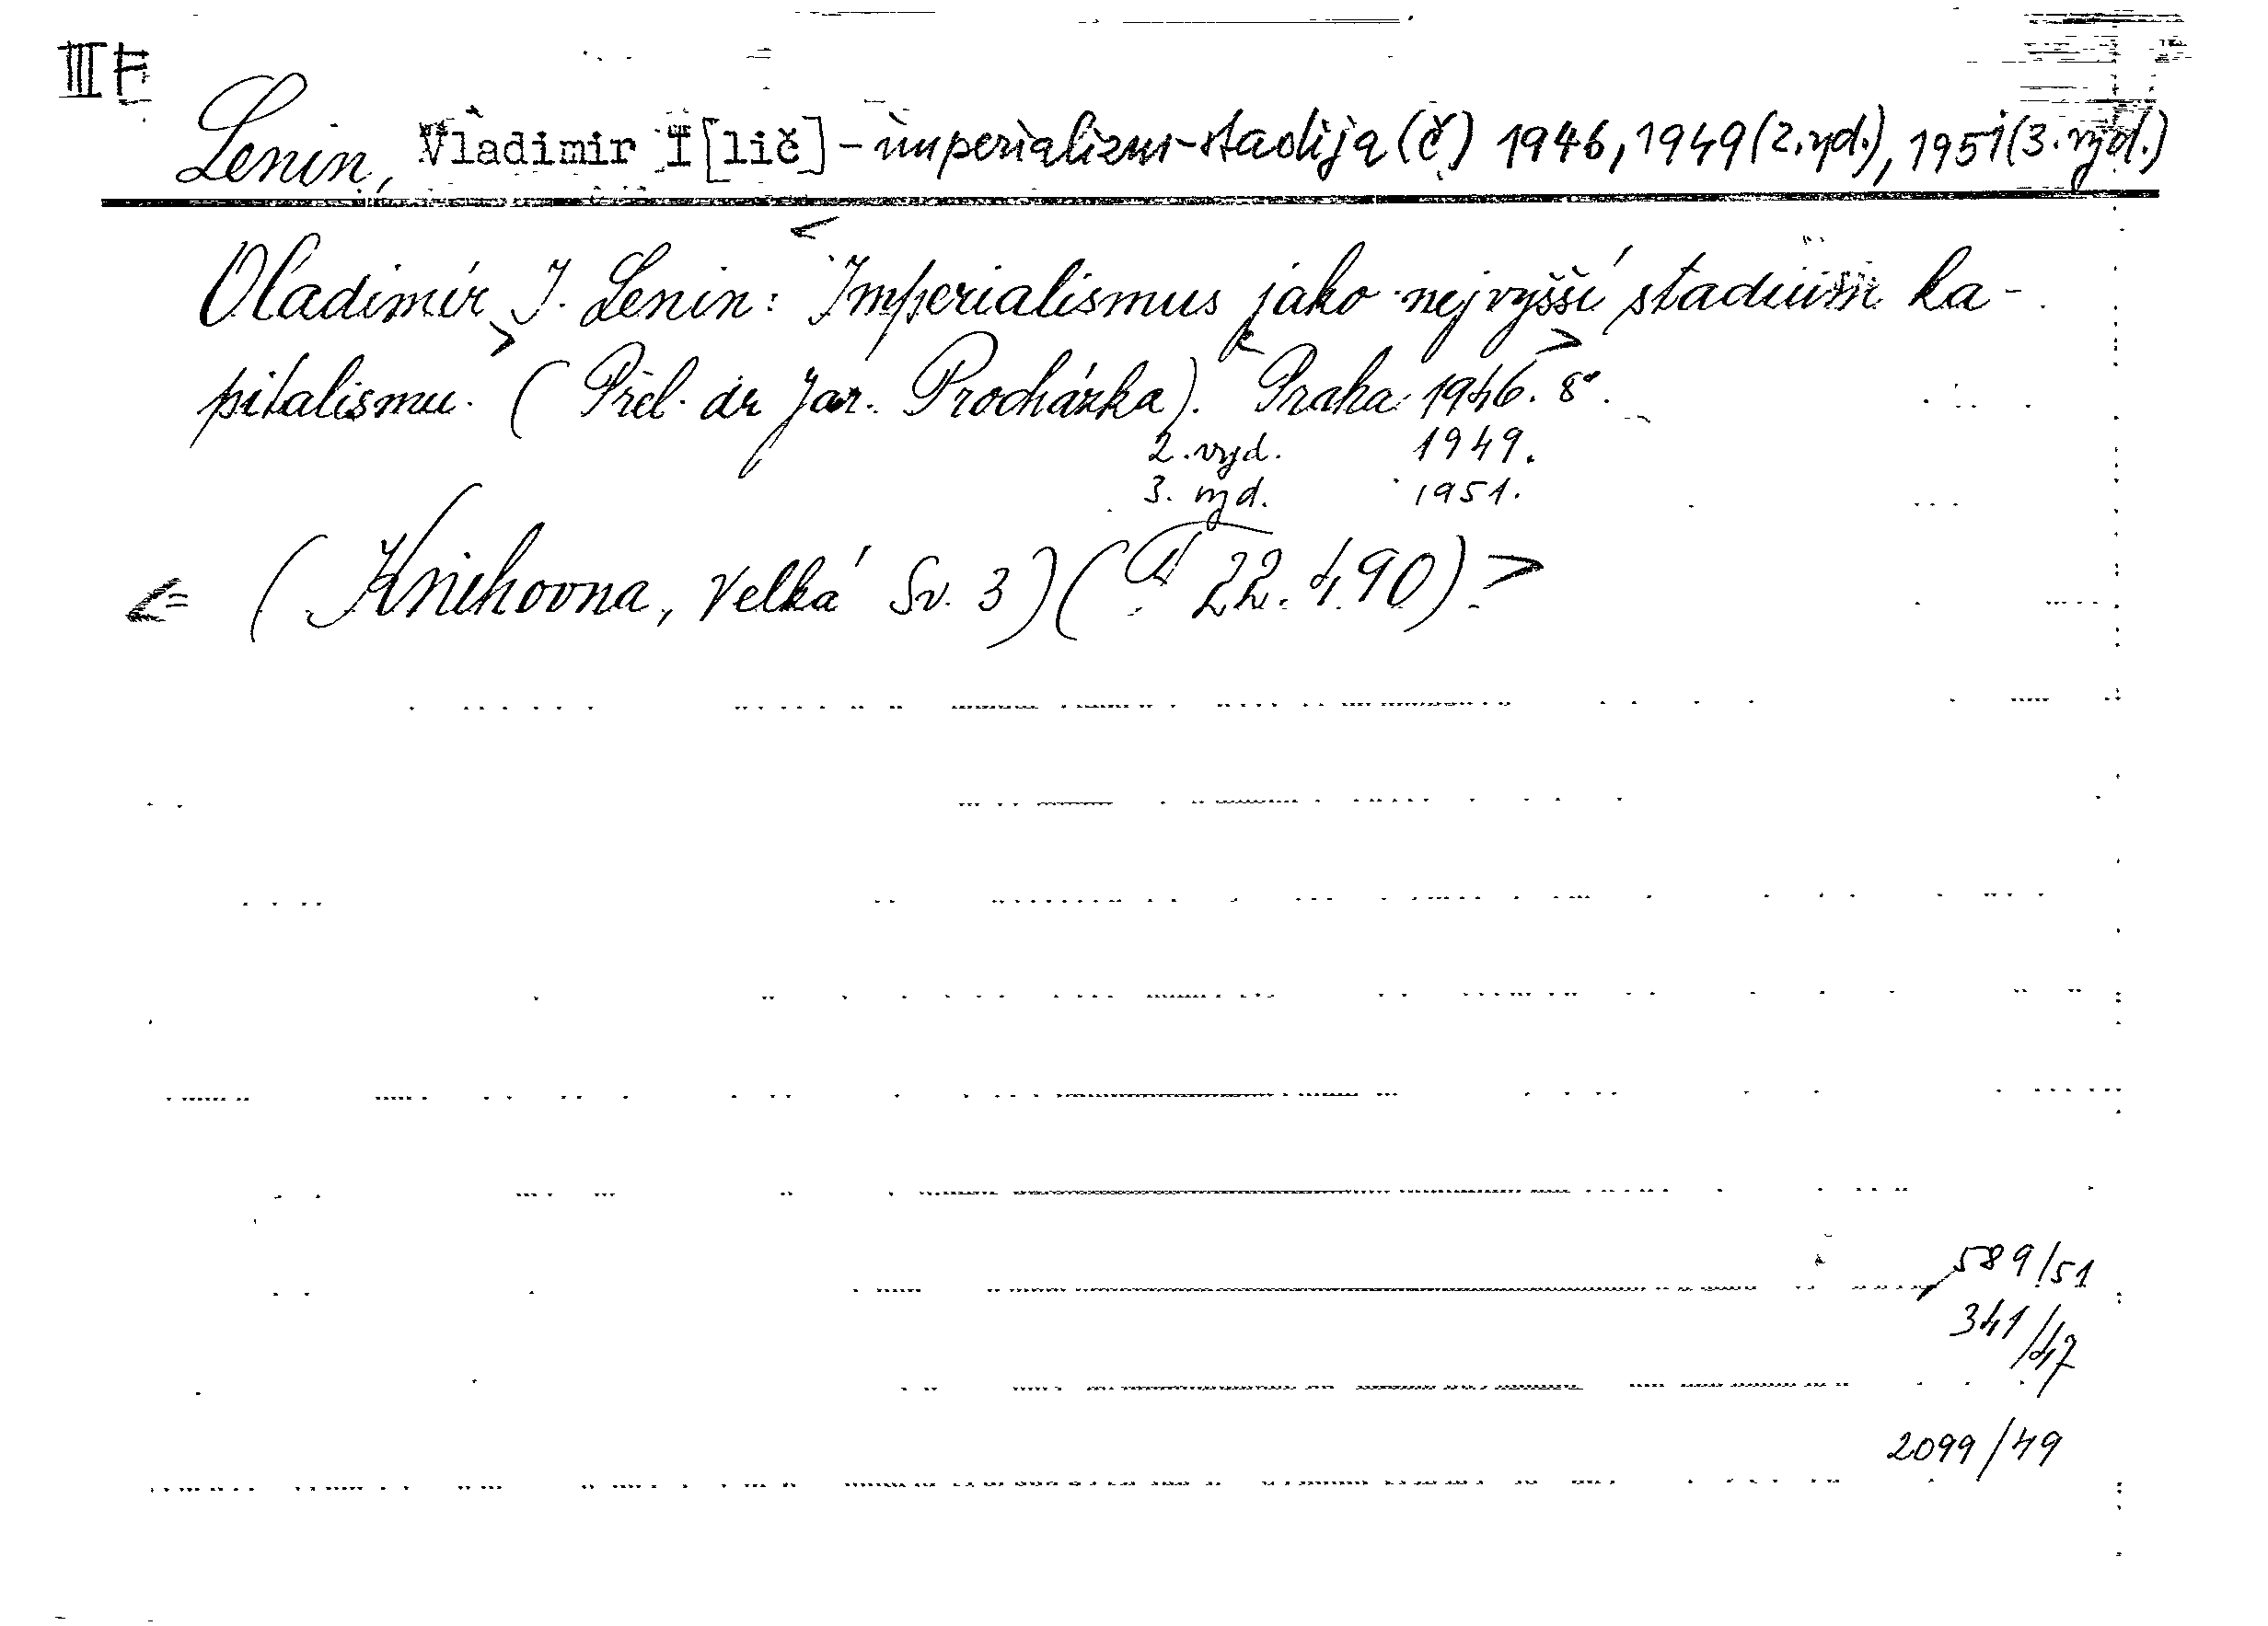 III E
Lenin, Vladimir I[lič] - imperializm-stadija (č) 1946, 1949 (2. vyd.), 1951 (3. vyd.)
<
Vladimír J. Lenin: Imperialismus jako nejvyšší stadium ka-
pitalismu. > (Přel. dr Jar. Procházka). < Praha 1946. > 8°.
2. vyd. 1949.
3. vyd. 1951.
< (Knihovna, Velká Sv. 3) ( 22.490) >
589/51
341/47
2099/49